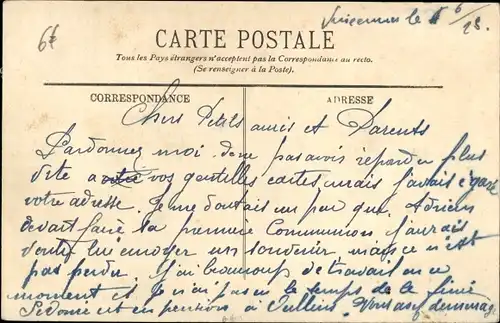 6€
Vincennes le 6/23.
CARTE POSTALE
Tous les Pays étrangers n'acceptent pas la Correspondance au recto.
(Se renseigner à la Poste).
CORRESPONDANCE
ADRESSE
Chers Petits amis et Parents
Pardonnez moi de ne pas avoir répondu plus
vite a vos gentilles cartes mais j'avais égaré
votre adresse. Je me doutais un peu que Adrien
devait faire sa première Communion j'aurais
voulu lui envoyer un souvenir mais ce n'est
pas perdu. J'ai beaucoup de travail en ce
moment et je n'ai pas le temps de le finir
est en pension à